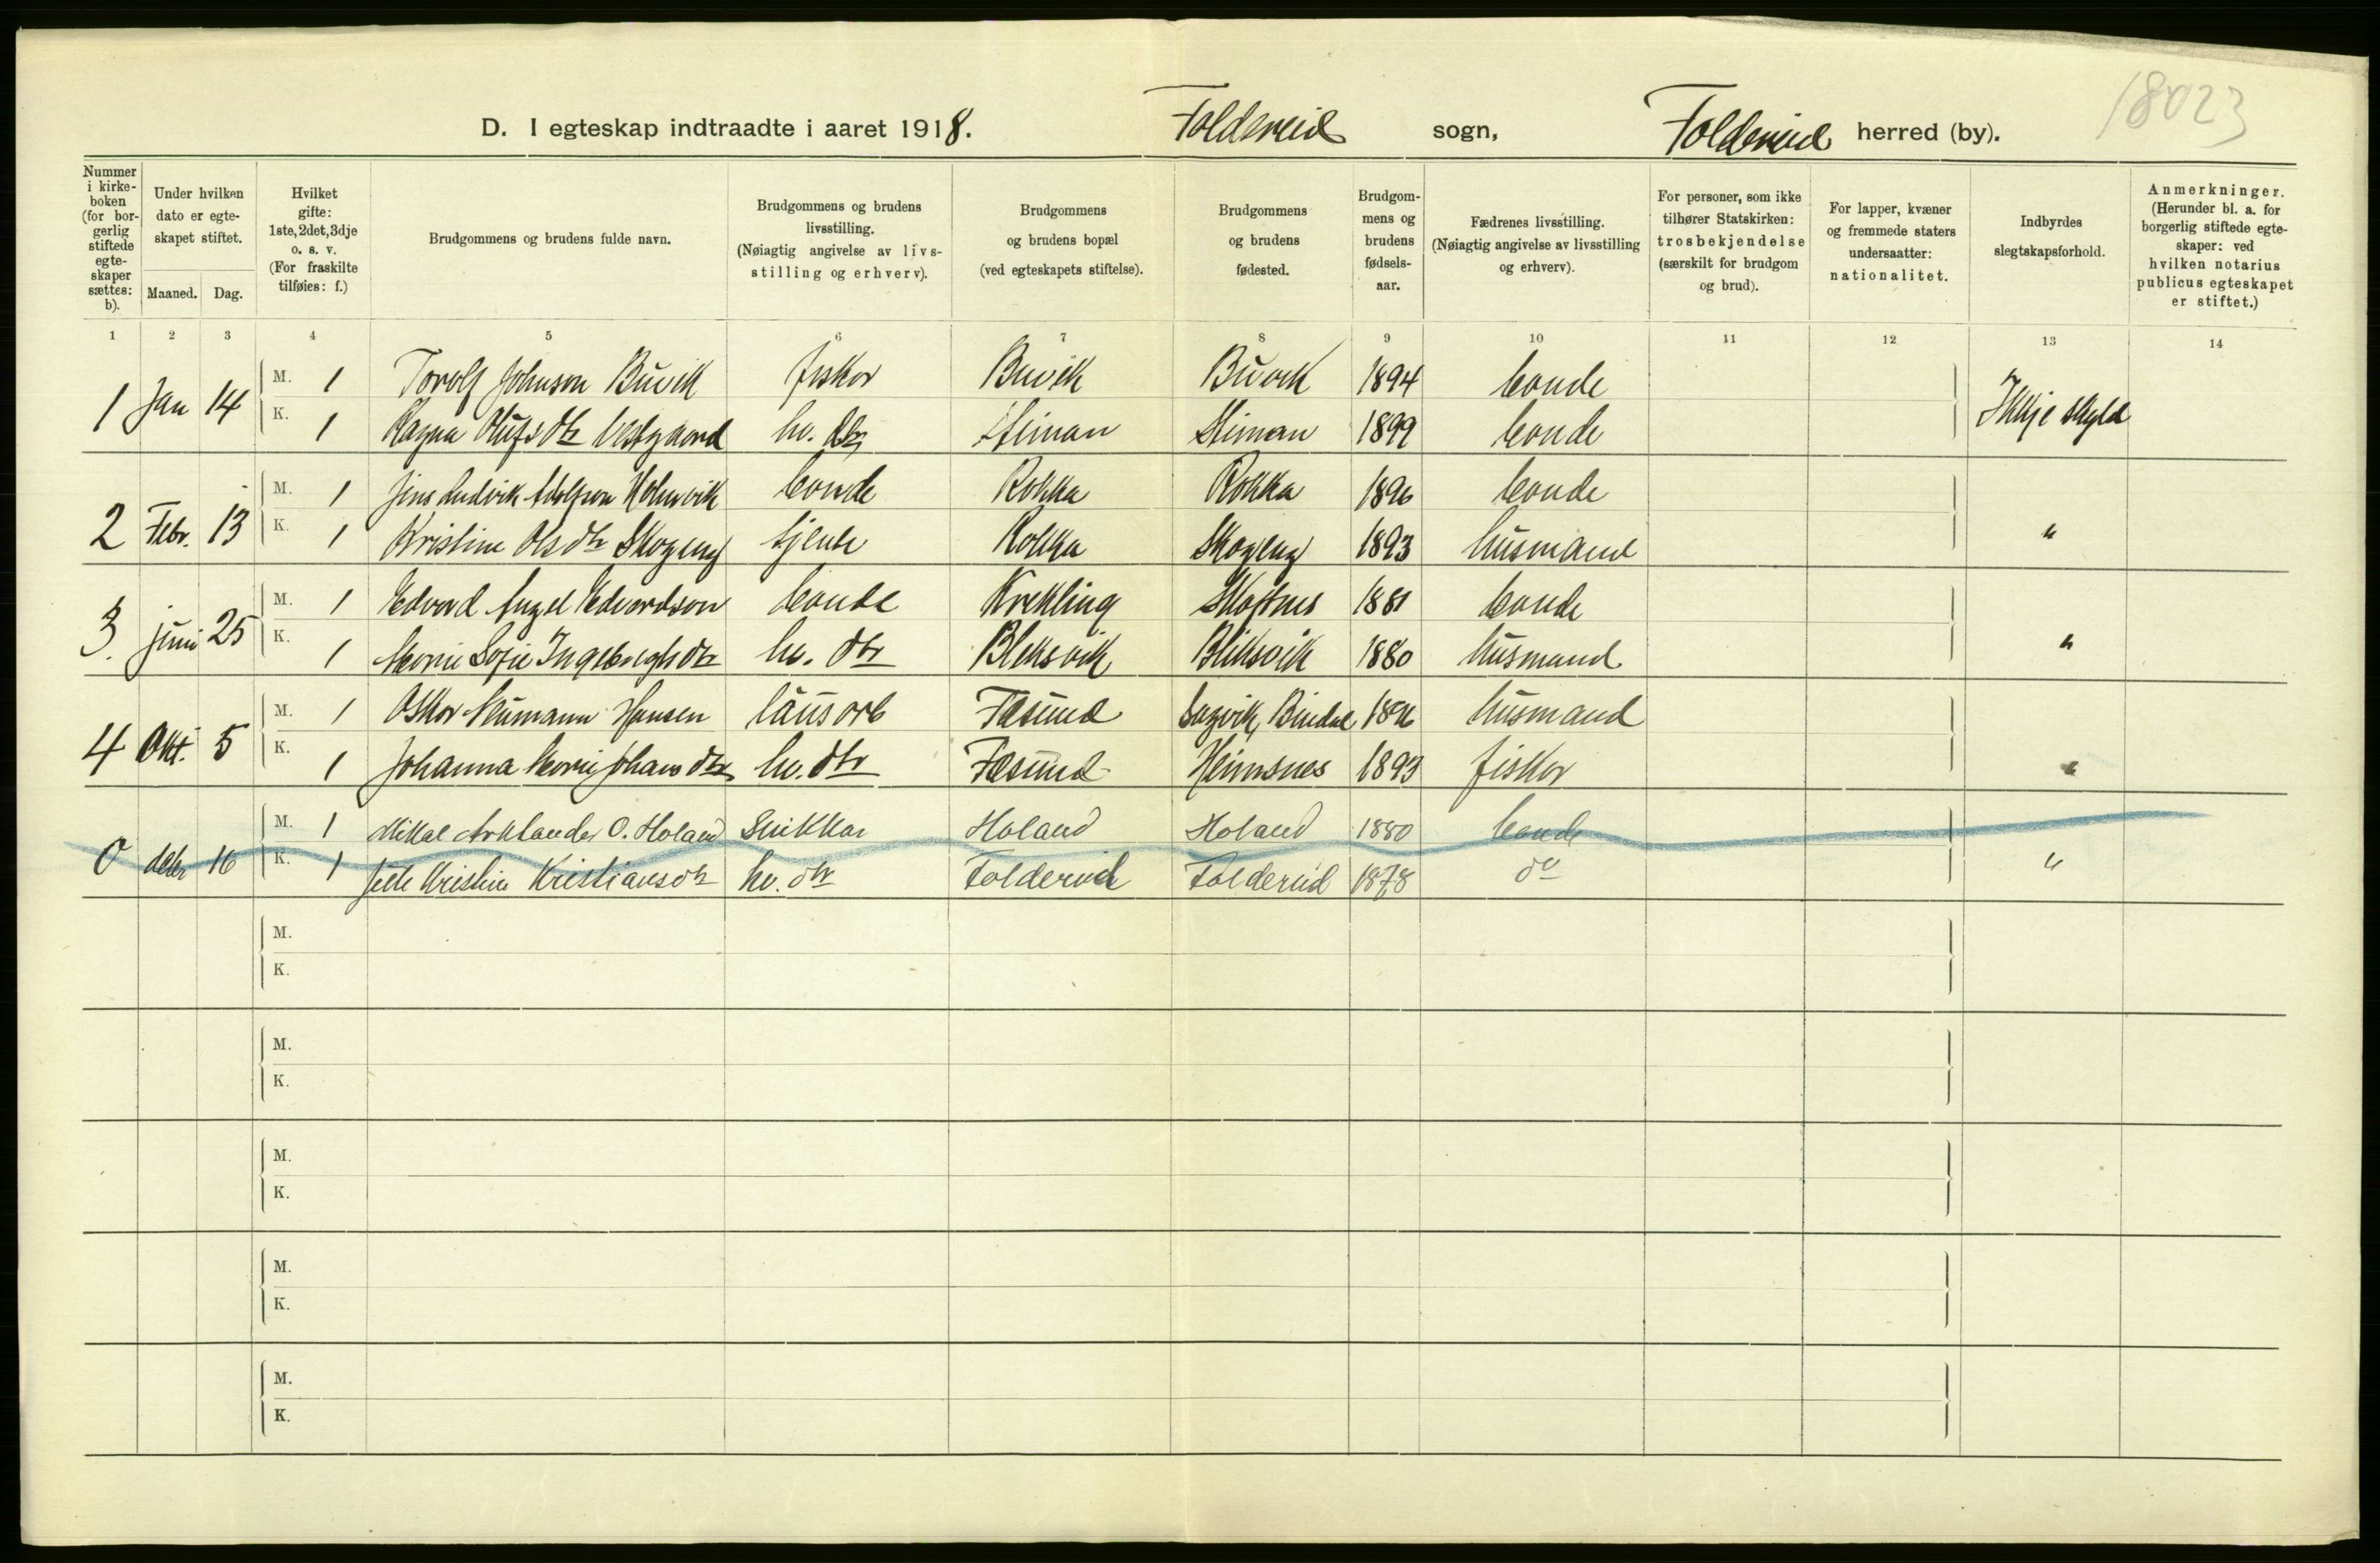 18023
D. I egteskap indtraadte i aaret 1918. Foldereid sogn, Foldereid herred (by).
Nummer i kirkeboken (for borgerlig stiftede egteskaper sættes: b).
Under hvilken dato er egteskapet stiftet.
Maaned. Dag.
Hvilket gifte: 1ste, 2det, 3dje o. s. v. (For fraskilte tilføies: f.)
Brudgommens og brudens fulde navn.
Brudgommens og brudens livsstilling. (Nøiagtig angivelse av livsstilling og erhverv).
Brudgommens og brudens bopæl (ved egteskapets stiftelse).
Brudgommens og brudens fødested.
Brudgommens og brudens fødselsaar.
Fædrenes livsstilling. (Nøiagtig angivelse av livsstilling og erhverv).
For personer, som ikke tilhører Statskirken: trosbekjendelse (særskilt for brudgom og brud).
For lapper, kvæner og fremmede staters undersaatter: nationalitet.
Indbyrdes slegtskapsforhold.
Anmerkninger. (Herunder bl. a. for borgerlig stiftede egteskaper: ved hvilken notarius publicus egteskapet er stiftet.)
1 2 3 4 5 6 7 8 9 10 11 12 13 14
1 Jan 14 M. 1 Torolf Johnson Buvik fiskar Buvik Buvik 1894 bonde
K. 1 Ragna Olufsdtr Vestgaard hv. dtr Steinan Steinan 1899 bonde Ikkje skyld
2 Febr. 13 M. 1 Jens Ludvik Adolfson Holmvik bonde Rokka Rokka 1896 bonde
K. 1 Kristine Olsdtr Skogeng tjente Rokka Skogeng 1893 husmand "
3. juni 25 M. 1 Edvard Angel Edvardson bonde Krekling Skotnes 1881 bonde
K. 1 Marie Sofie Ingebrigtsdtr hv. dtr Bleksvik Bliksvik 1880 husmand "
4 Okt. 5 M. 1 Oskar Neumann Hansen lausarb Fæsund Bindal 1896 husmand
K. 1 Johanna Marie Johansdtr hv. dtr Fæsund Heimsnes 1893 fiskar "
0 debr 16 M. 1 Mikal Arklander O. Holand Snikkar Holand Holand 1880 bonde
K. 1 Jette Kristine Kristiansdtr hv. dtr Foldereid Foldereid 1878 do "
M.
K.
M.
K.
M.
K.
M.
K.
M.
K.